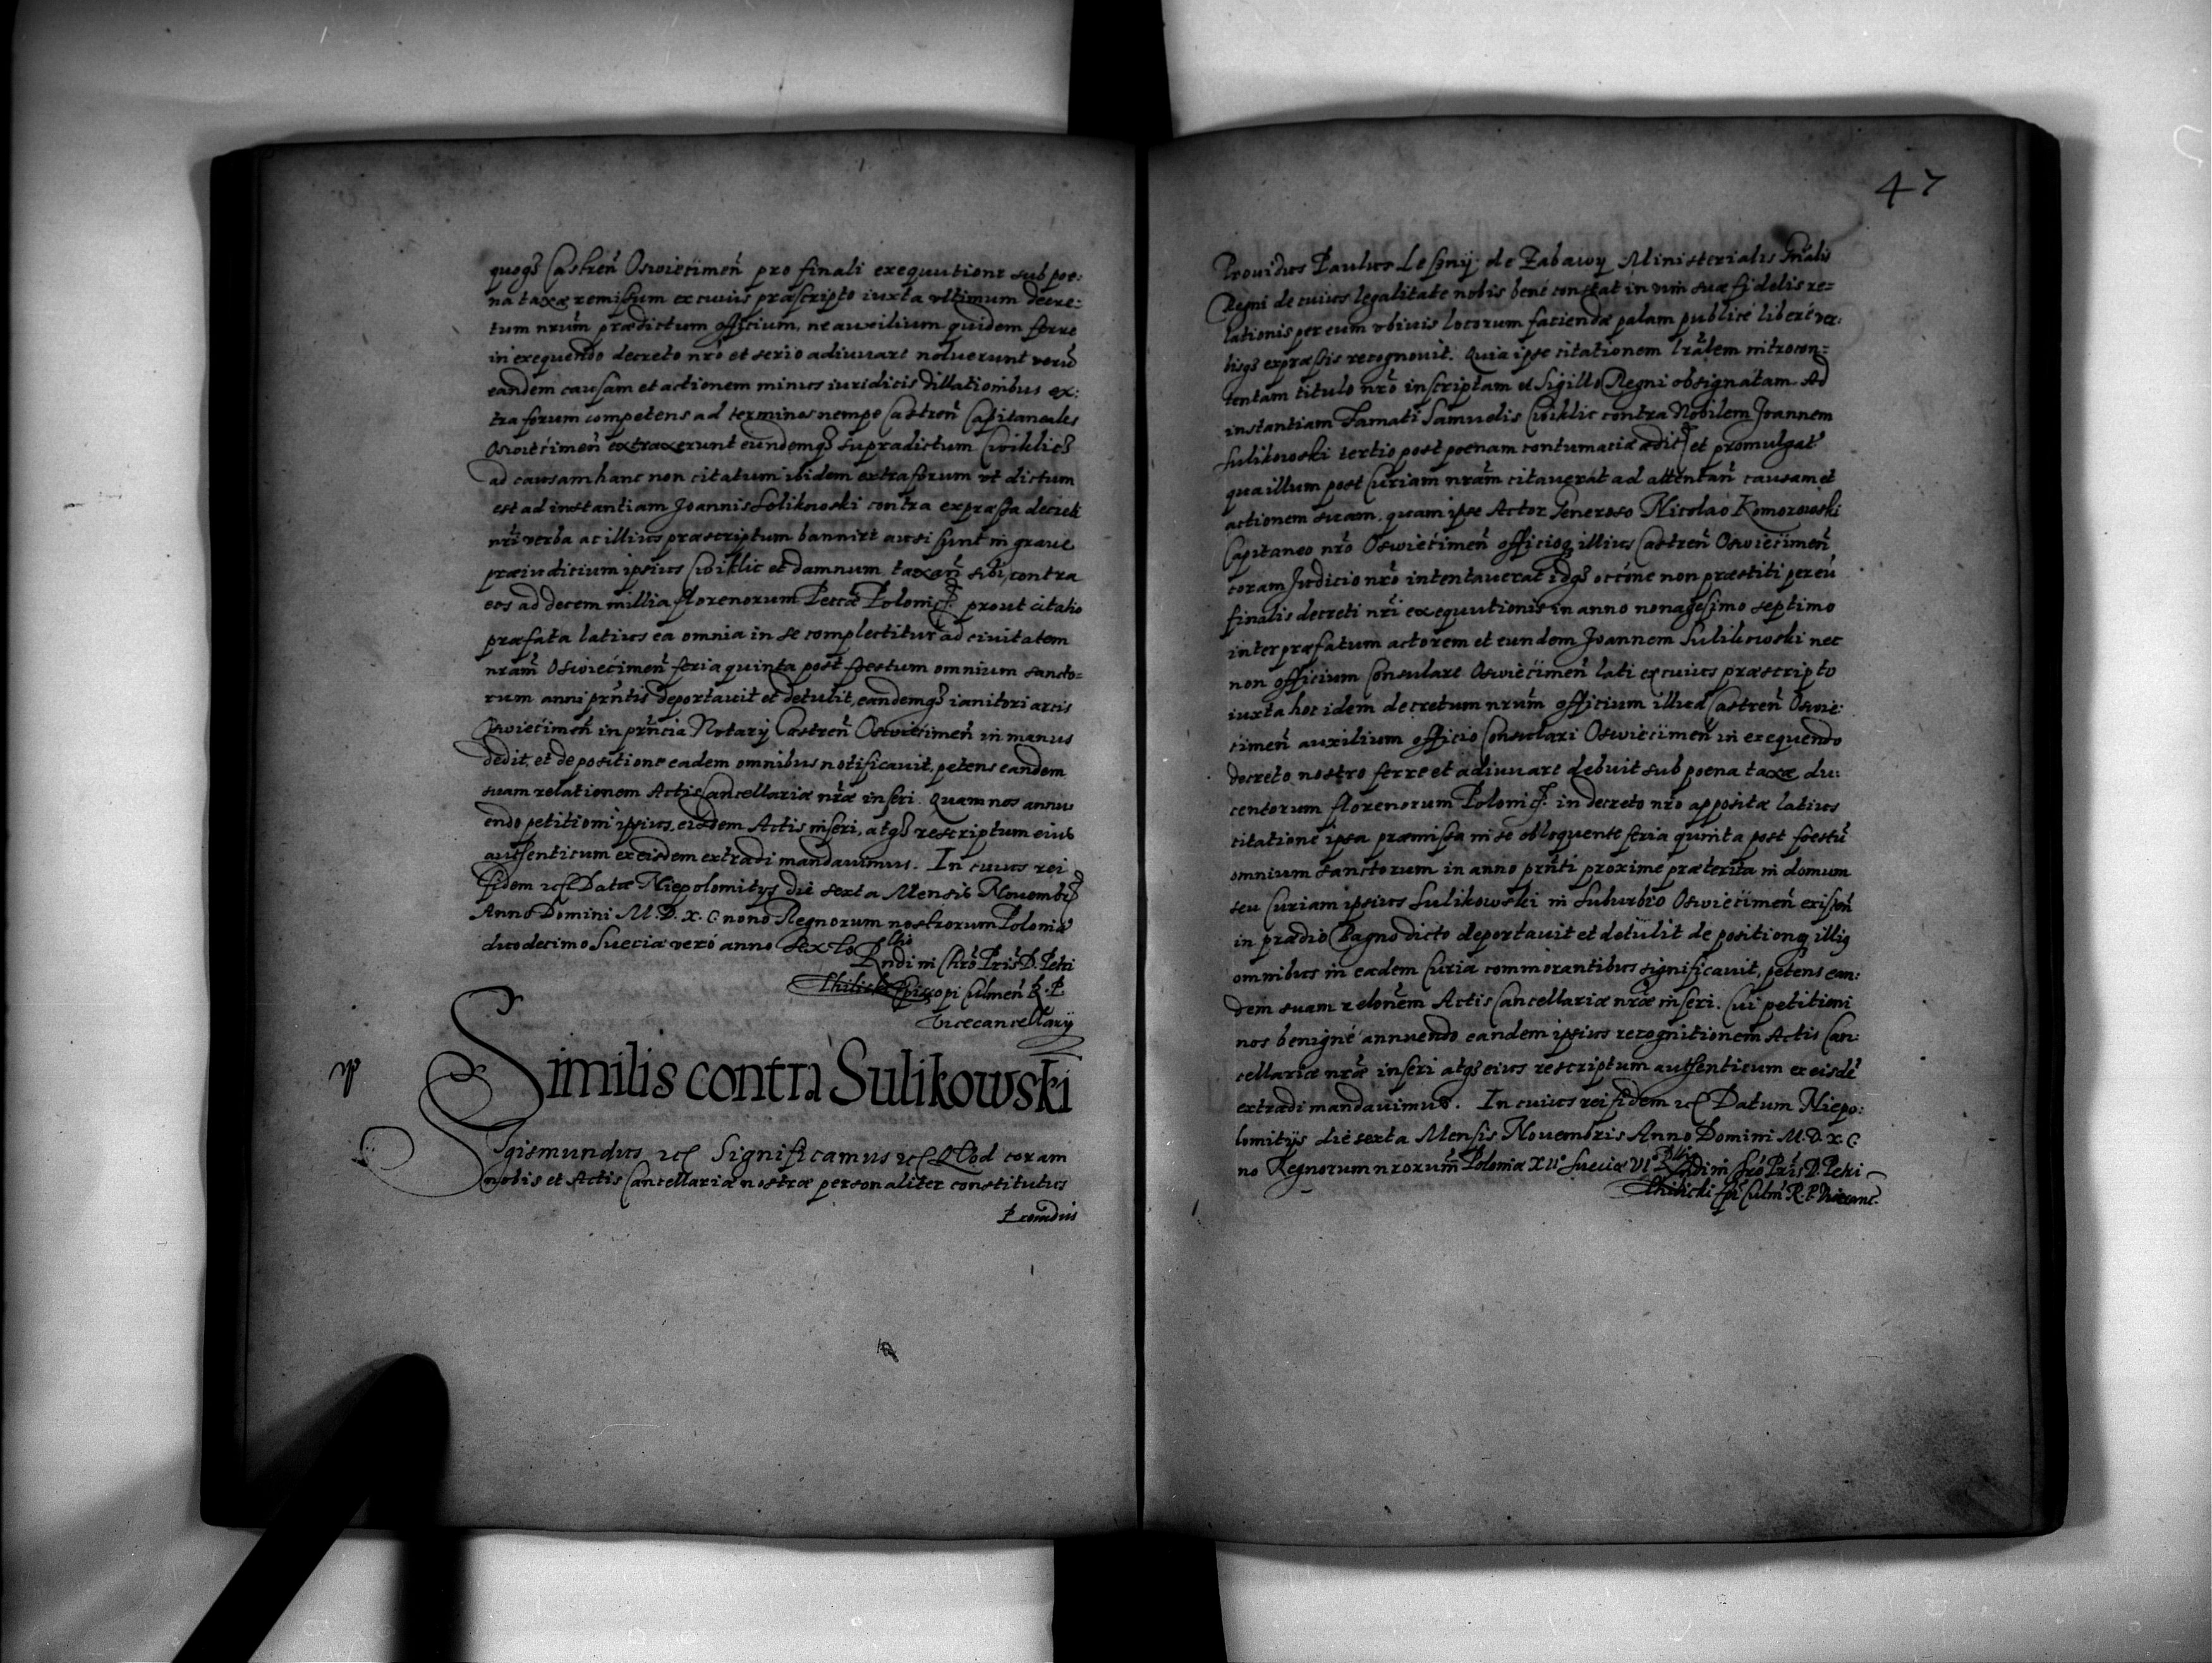 quoq₃ Castreñ Oswiećimeñ pro finali exequutione sub poe:
na taxæ remissum ex cuius præscripto iuxta vltimum decre:
tum nrũm prædictum officium, ne auxilium quidem ferre
in exequendo decreto nrõ et serio adiuuare noluerunt verũ
eandem causam et actionem minus iuridicis dillationibus ex:
tra forum competens ad terminos nempe Castreñ Capitaneales
Oswiećimeñ extraxerunt eundemq₃ supradictum Cwiklicz
ad causam hanc non citatum ibidem extra forum vt dictum
est ad instantiam Joannis Solikoski contra expræssa decreti
nrĩ verba ac illius præscriptum bannire ausi sunt in graue
præiudicium ipsius Cwiklic et damnum taxañ sibi, contra
eos ad decem millia florenorum Peccæ Polonic. prout citatio
præfata latius ea omnia in se complectitur ad ciuitatem
nram̃ Oswiećimeñ feria quinta post foestum omnium sancto:
rum anni prñtis deportauit et detulit, eandemq₃ ianitori arcis
Oswiećimeñ in prñcia Notarÿ Castreñ Oswiećimeñ in manus
dedit, et de positione eadem omnibus notificauit, petens eandem
suam relationem Actis Cancellariæ nrãe inseri. Quam nos annu
endo petitioni ipsius, eisdem Actis inseri, atq₃ rescriptum eius
authenticum ex eisdem extradi mandauimus. In cuius rei
fidem etc Datæ Niepolomitÿs die sexta Mensis Nouembr
Anno Domini M.D.X.C. nono Regnorum nostrorum Poloniæ
duodecimo Sueciæ veró anno sexto
Rndi in Chrõ Pris D. Petri
Thilicki Episcopi Culmeñ R. P.
Vicecancellarÿ
Similis contrà Sulikowski
Sigismundus etc Significamus etc Quod coram
nobis et Actis Cancellariæ nostræ personaliter constitutus
Prouidus
47
Prouidus Paulus Lesznÿ de Zabawy Ministerialis Gnãlis
Regni de cuius legalitate nobis bené constat in vim suæ fidelis re=
lationis per eum vbiuis locorum faciendæ palam publicé liberé ver:
bisq₃ expræssis recognouit. Quia ipse citationem lrãlem introcon=
tentam titulo nrõ inscriptam et Sigillo Regni obsignatam Ad
instantiam Famati Samuelis Cwiklic contra Nobilem Joannem
Sulikowski tertio post poenam contumaciæ ædit et promulgat
qua illum post Curiam nram̃ citauerat ad attentañ causam et
actionem suam, quam ipse Actor Generoso Nicolao Komorowski
Capitaneo nrõ Oswiećimeñ officioq illius Castreñ Oswiećimeñ
coram Judicio nrõ intentauerat idq₃ occõne non præstiti per eũ
finalis decreti nrĩ exequutionis in anno nonagesimo septimo
inter præfatum actorem et eundem Joannem Sulikowski nec
non officium Consulare Oswiećimeñ lati ex cuius præscripto
iuxta hoc idem decretum nrũm officium illud Castreñ Oswie:
cimeñ auxilium officio Consulari Oswiećimeñ in exequendo
decreto nostro ferre et adiuuare debuit sub poena taxæ du:
centorum florenorum Polonic. in decreto nrõ appositæ latius
citatione ipsa præmissa in se obloquente feria quinta post foestũ
omnium sanctorum in anno prñti proxime præterita in domum
seu Curiam ipsius Sulikowski in Suburbio Oswiećimeñ existeñ
in prædio Bagno dicto deportauit et detulit de positioneq illig
omnibus in eadem Curia commorantibus significauit, petens ean:
dem suam relonẽm Actis Cancellariæ nrãe inseri. Cui petitioni
nos benigné annuendo eandem ipsius recognitionem Actis Can:
cellariæ nrãe inseri atq₃ eius rescriptum authenticum ex eisdẽ
extradi mandauimus. In cuius rei fidem etc Datum Niepo:
lomitÿs die sexta Mensis Nouembris Anno Domini M.D.X.C.
no Regnorum nrorum̃ Poloniæ XIIº Sueciæ VIº Rndi in Chrõ Pris D. Petri
Thilicki Epi Culm R. P. Vicecanc.